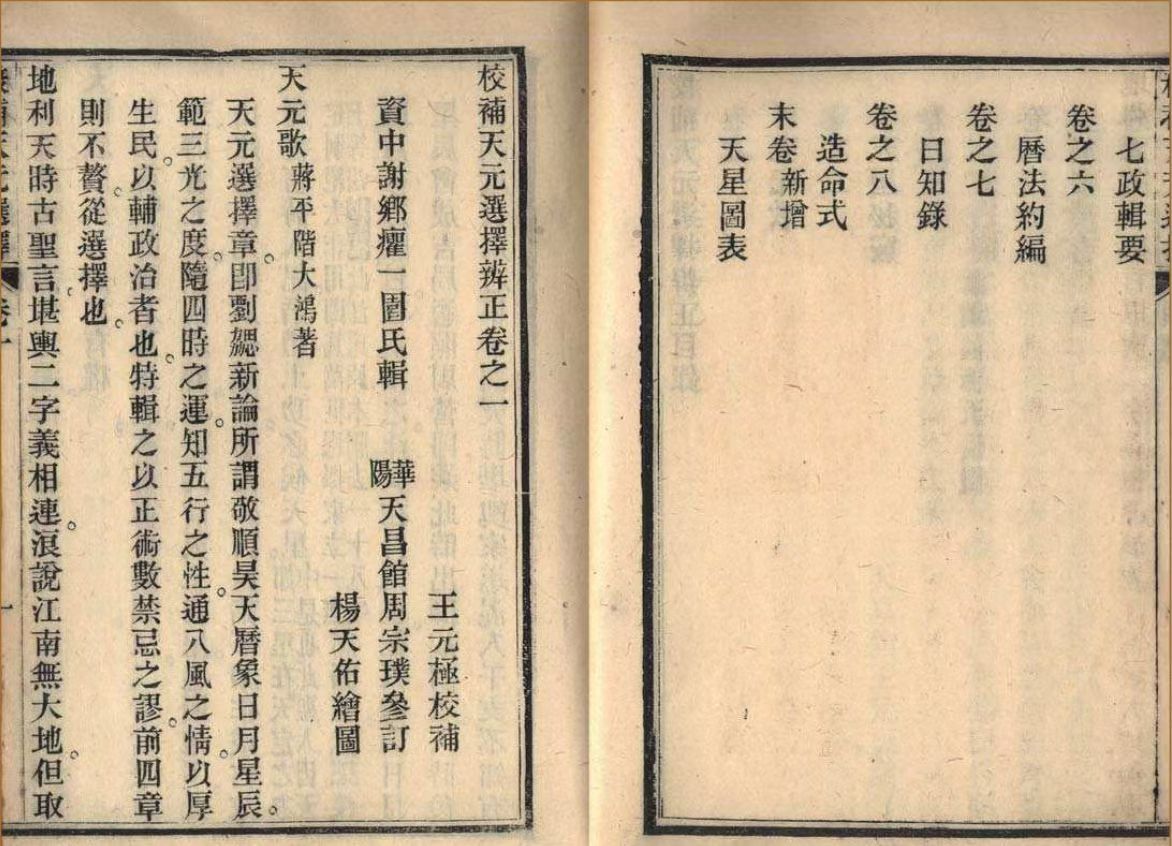 七政輯要
卷之六
曆法約編
卷之七
日知錄
卷之八
造命式
末卷新增
天星圖表
校補天元選擇辨正卷之一
王元極校補
資中謝鄉癯一圄氏輯 華陽天昌館周宗璞叅訂
楊天佑繪圖
天元歌蔣平階大鴻著
天元選擇章。卽劉勰新論所謂敬順昊天曆象日月星辰。
範三光之度。隨四時之運。知五行之性。通八風之情。以厚
生民。以輔政治者也。特輯之以正術數禁忌之謬。前四章
則不贅。從選擇也。
地利天時古聖言堪輿二字義相連。浪說江南無大地。但取